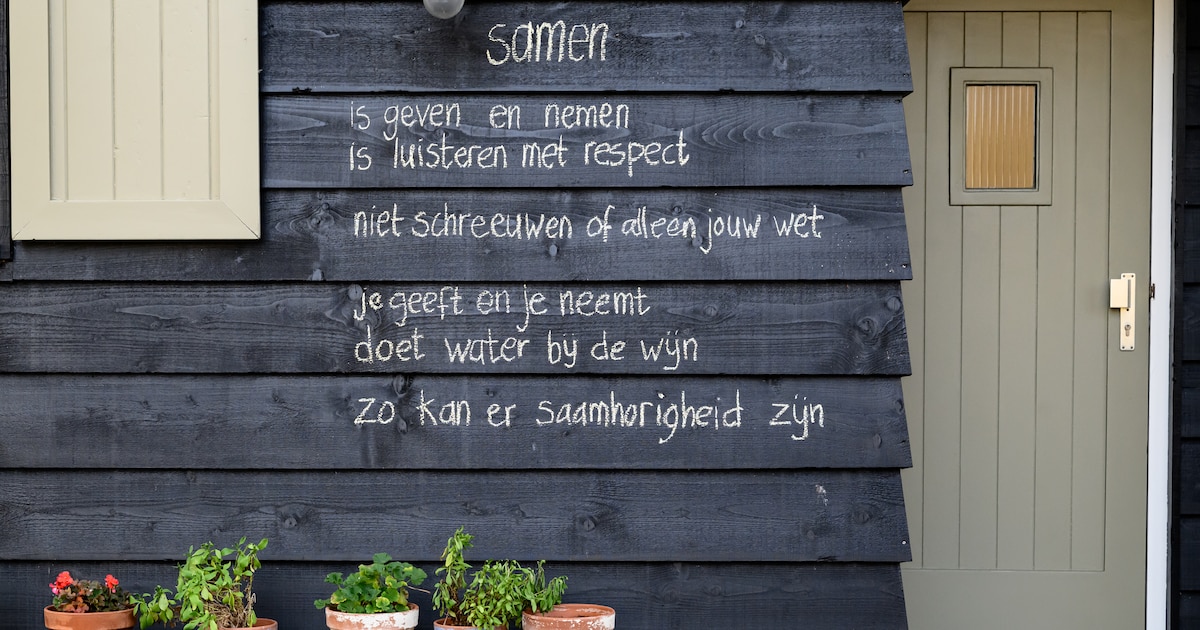 samen
is geven en nemen
is luisteren met respect
niet schreeuwen of alleen jouw wet
je geeft en je neemt
doet water bij de wijn
zo kan er saamhorigheid zijn